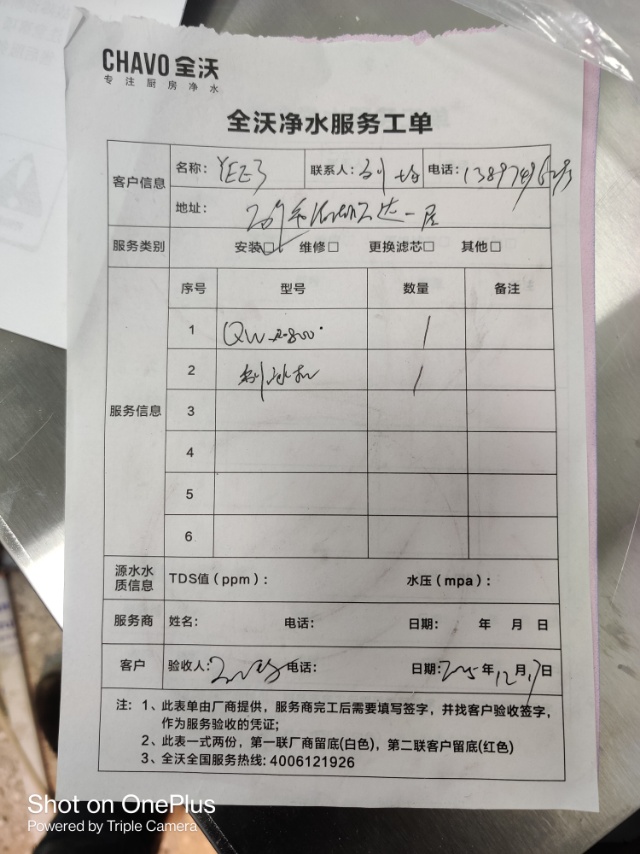 CHAVO 全沃
专注厨房净水
全沃净水服务工单
客户信息 名称: YEE3 联系人: 电话:
地址: 一层
服务类别 安装☑ 维修□ 更换滤芯□ 其他□
服务信息 序号 型号 数量 备注
1 QW-R800 1
2 制冰机 1
3
4
5
6
源水水质信息 TDS值(ppm): 水压(mpa):
服务商 姓名: 电话: 日期: 年 月 日
客户 验收人: 电话: 日期: 2025年12月17日
注: 1、此表单由厂商提供,服务商完工后需要填写签字,并找客户验收签字,
作为服务验收的凭证;
2、此表一式两份,第一联厂商留底(白色),第二联客户留底(红色)
3、全沃全国服务热线: 4006121926
Shot on OnePlus
Powered by Triple Camera